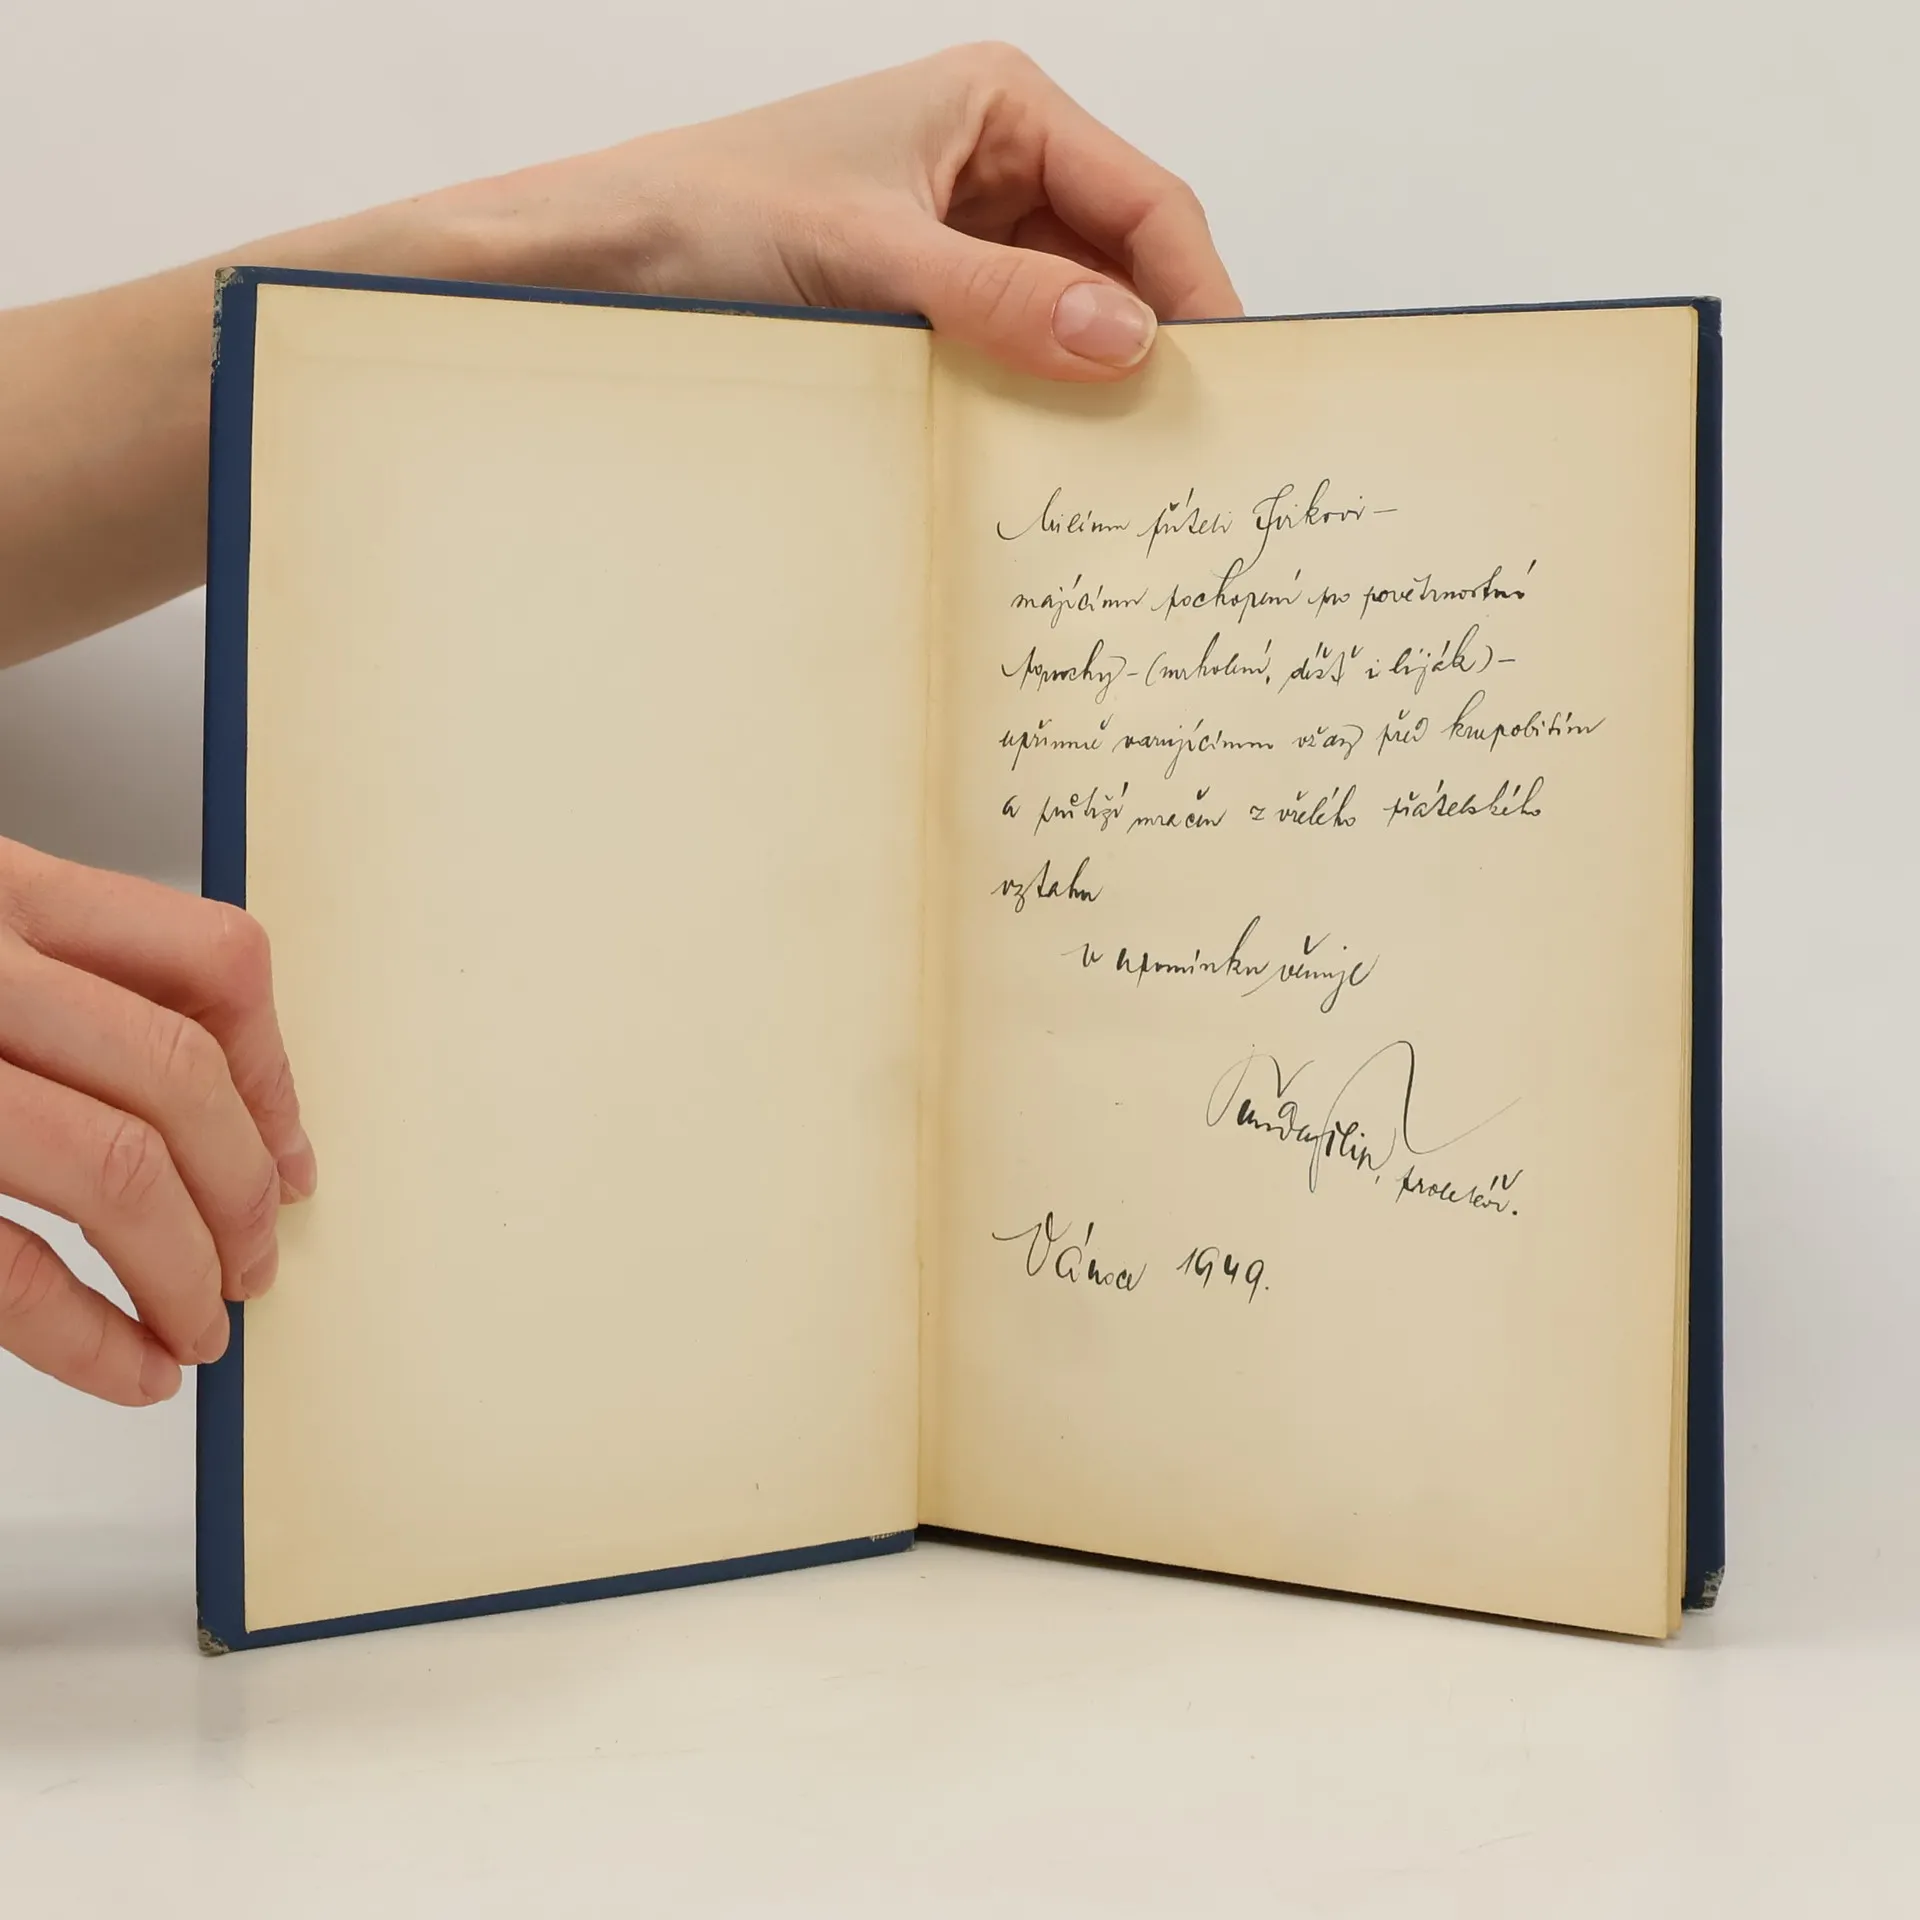 Milému příteli Jirkovi —
majícímu pochopení pro povětrnostní
poruchy - (mrholení, déšť i liják) —
upřímně varujícímu vžas před krupobitím
a průtrží mračen z vřelého přátelského
vztahu
v upomínku věnuje
Vánoce 1949.